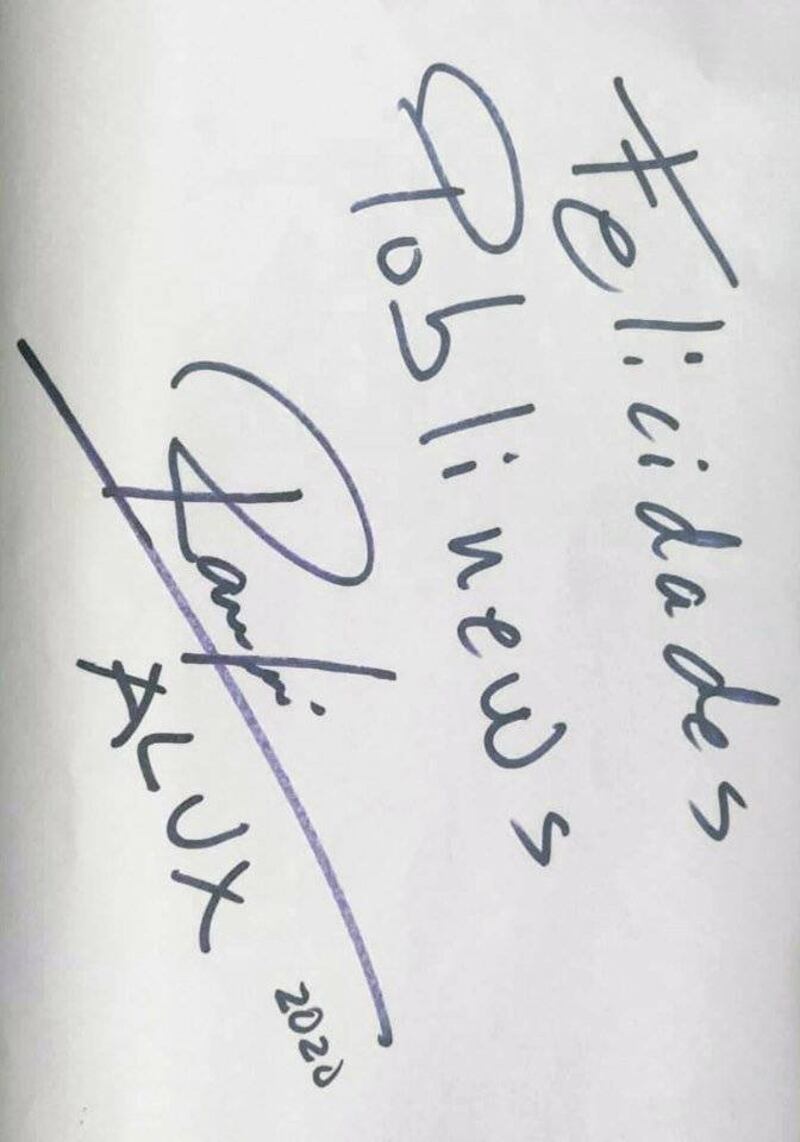 Felicidades
Poblinews
ALUX
2020